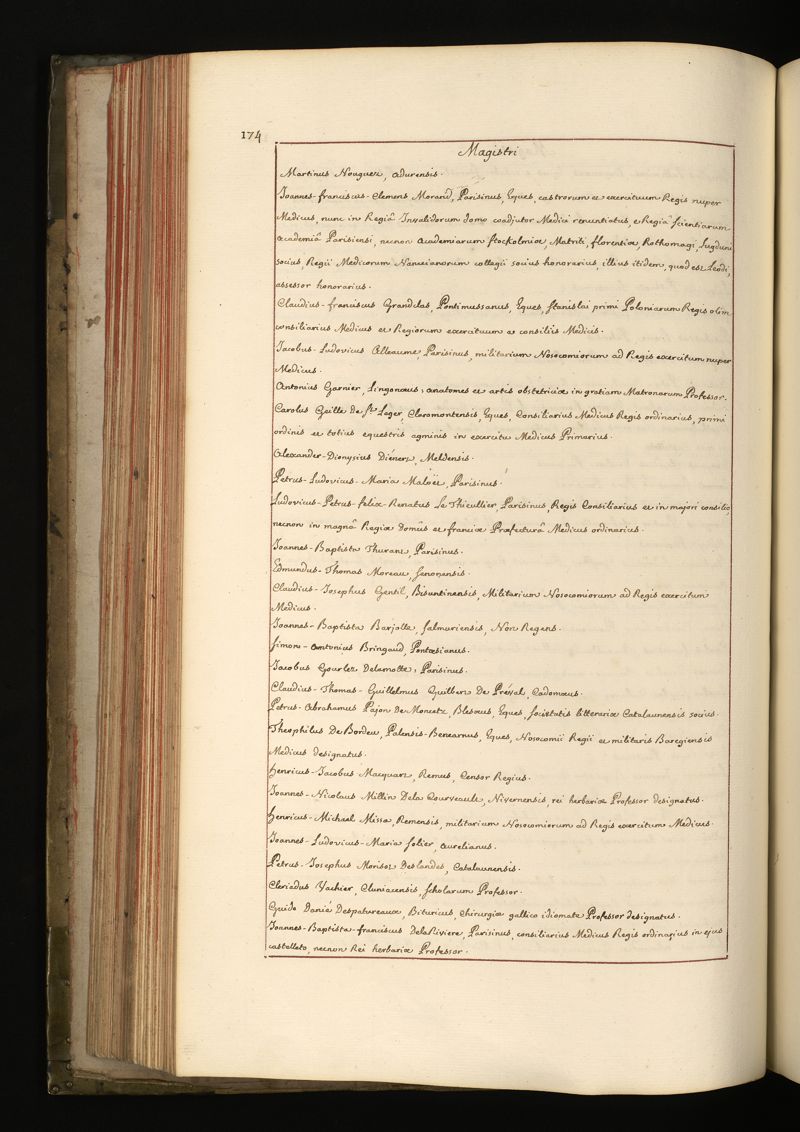 174
Magistri
Martinus Nouguez, adurensis.
Joannes-franciscus-Clemens Morand, Parisinus, Eques, castrorum et exercituum Regis nuper
Medicus, nunc in Regiâ Invalidorum domo coadjutor Medici renuntiatus e Regiâ scientiarum
academiâ Parisiensi, necnon academiarum stockolmiæ Matriti, florentiæ, Rothomagi, Lugduni
socius, Regii Medicorum Nanceianorum collegii socius honorarius, illius itidem, quod est Leodi,
assessor honorarius.
Claudius-franciscus Grandclas, Pontimussanus, Eques, stanislai primi Poloniarum Regis olim
consiliarius Medicus et Regiorum exercituum a consiliis Medicis.
Jacobus-Ludovicus Alleaume, Parisinus, militarium Nosocomiorum ad Regis exercitum nuper
Medicus.
Antonius Garnier, Lingonæus, anatomes et artis obstetriciæ in gratiam Matronarum Professor.
Carolus Geille De St. Leger, Claromontensis, Eques, Consiliarius Medicus Regis ordinarius, primi
ordinis et totius equestris agminis in exercitu Medicus Primarius.
Alexander-Dionysius Diénert, Meldensis.
Petrus-Ludovicus-Maria Maloët, Parisinus.
Ludovicus-Petrus-felix-Renatus Le Thieullier, Parisinus, Regis Consiliarius et in majori consilio,
necnon in magnâ Regiæ domûs et franciæ Præfecturâ Medicus ordinarius.
Joannes-Baptista Thurant, Parisinus.
Edmundus-Thomas Moreau, senonensis.
Claudius-Josephus Gentil, Bisuntinensis, Militarium Nosocomiorum ad Regis exercitum
Medicus.
Joannes-Baptista Barjolle, salmuriensis, Non Regens.
simon-Antonius Bringaud, Pontæsianus.
Jacobus Gourlez Delamotte, Parisinus.
Claudius-Thomas-Guillelmus Guilbert De Préval, Cadomæus.
Petrus-Abrahamus Pajon De Moncetz, Blesæus, Eques, societatis litterariæ Catalaunensis socius.
Theophilus De Bordeu, Palensis-Benearnus, Eques, Nosocomii Regii et militaris Baregiensis
Medicus designatus.
Henricus-Jacobus Macquart, Remus, Censor Regius.
Joannes-Nicolaus Millin Dela Courveault, Nivernensis, rei herbariæ Professor designatus.
Henricus-Michael Missa, Remensis, militarium Nosocomiorum ad Regis exercitum Medicus.
Joannes-Ludovicus-Maria solier, aurelianus.
Petrus-Josephus Morisot Deslandes, Catalaunensis.
Cleriadus Vachier, Cluniacensis, scholarum Professor.
Guido Danié Despatureaux, Bituricus, Chirurgiæ gallico idiomate Professor designatus.
Joannes-Baptista-franciscus Dela Riviere, Parisinus, consiliarius Medicus Regis ordinarius in ejus
castelleto, necnon Rei herbariæ Professor.